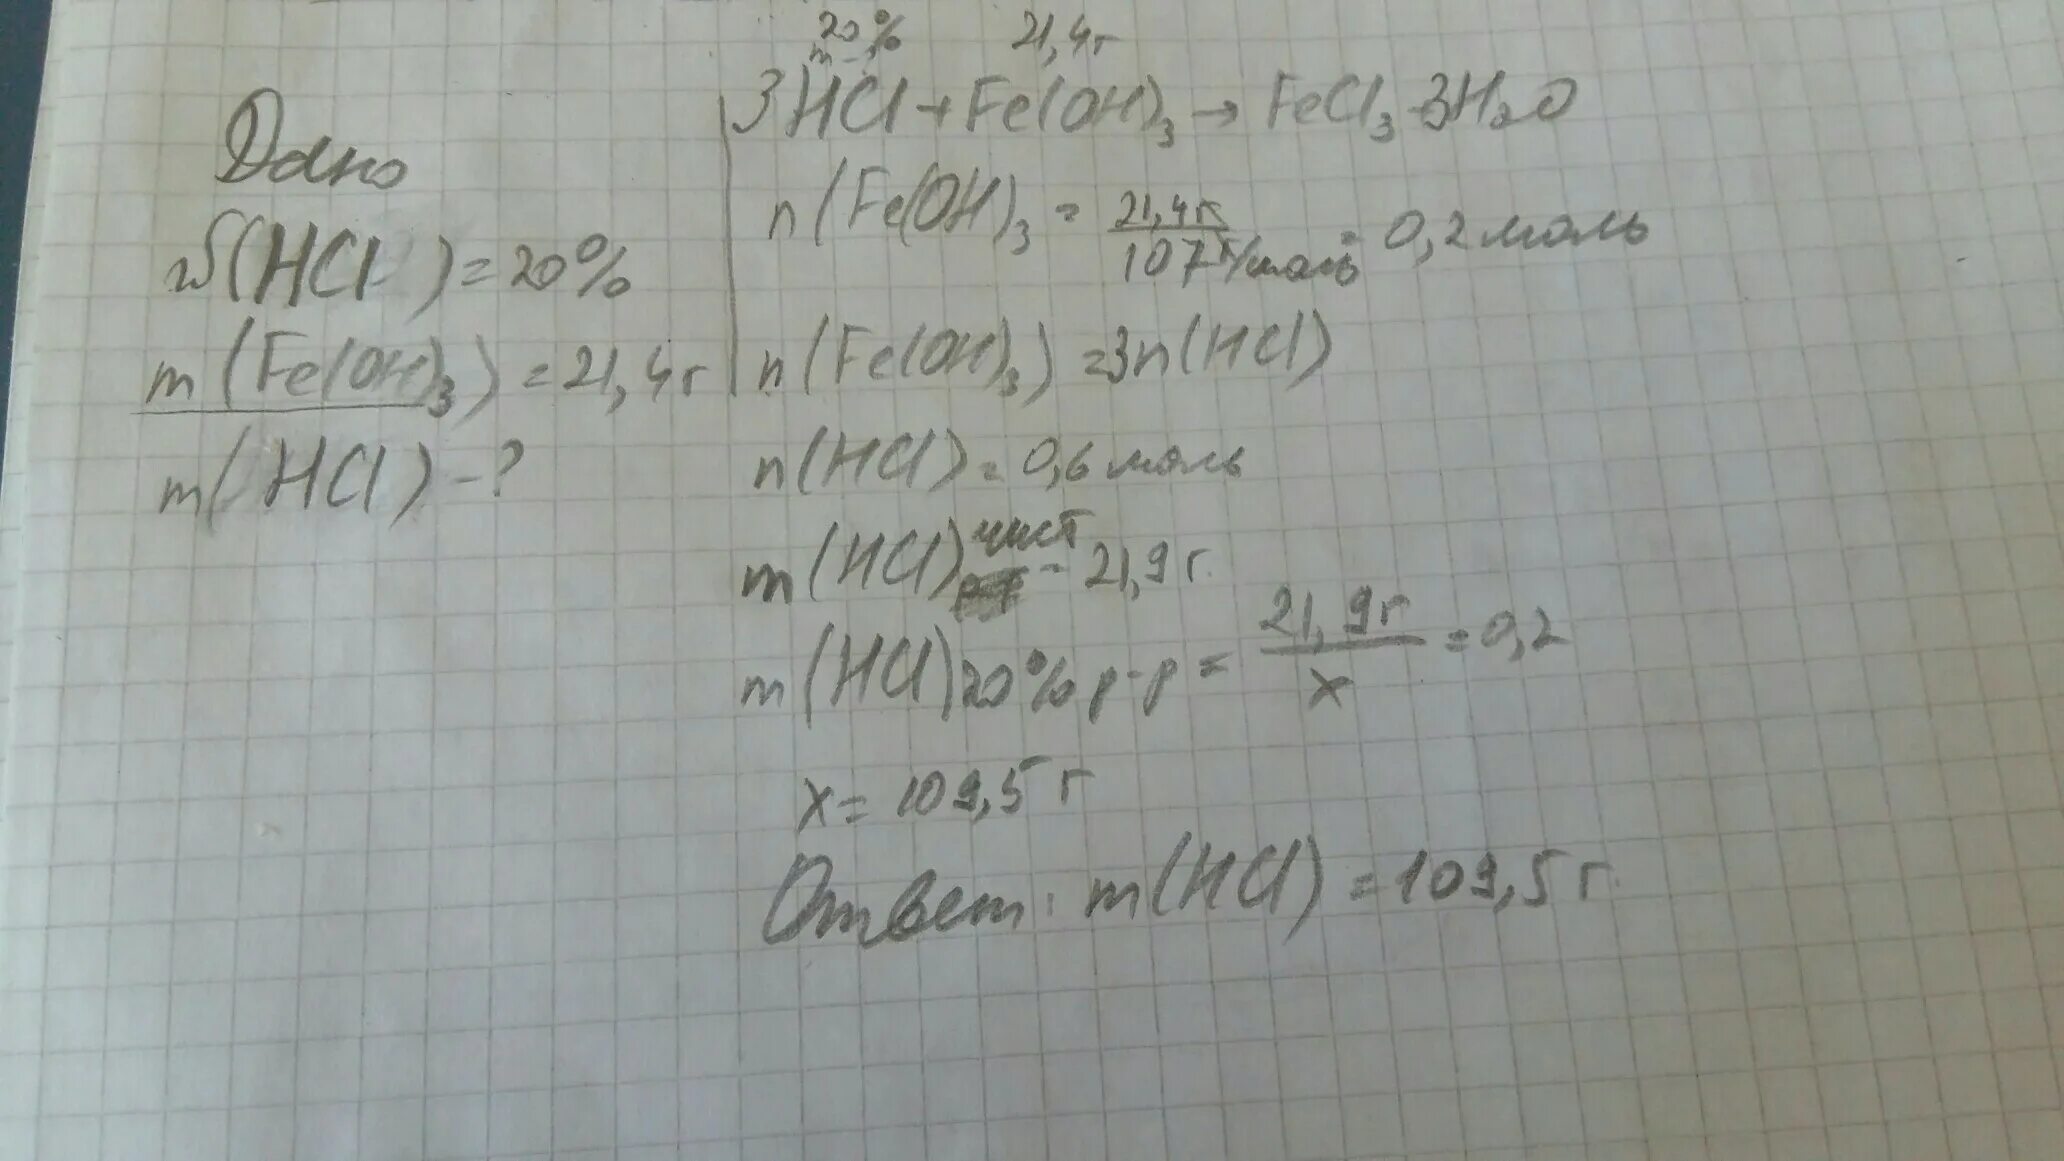 Дано
w(HCl) = 20%
m(Fe(OH)3) = 21,4г
m(HCl) - ?
20% 21,4г
3HCl + Fe(OH)3 → FeCl3 3H2O
n(Fe(OH)3 = 21,4г / 107г/моль = 0,2 моль
n(Fe(OH)3) = 3n(HCl)
n(HCl) = 0,6 моль
m(HCl) чист = 21,9г.
m(HCl) 20% р-р = 21,9г / x = 0,2
x = 109,5 г
Ответ: m(HCl) = 109,5 г.